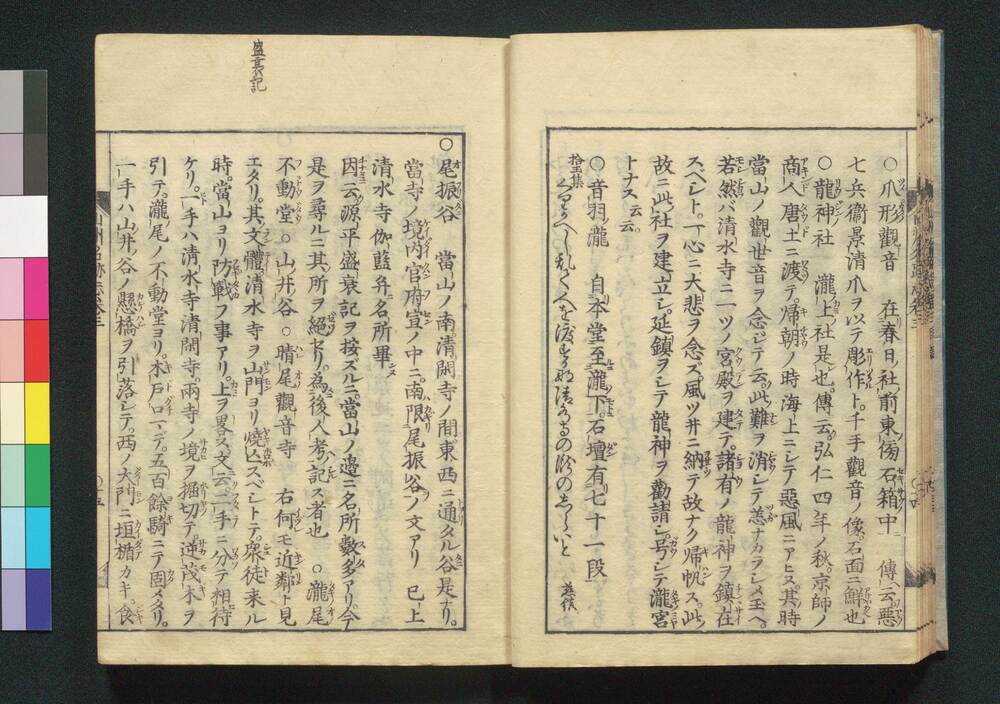 ○爪形觀音 在春日ノ社ノ前東ノ傍石箱ノ中ニ 傳云惡
七兵衞景清爪ヲ以テ彫作ト千手觀音ノ像石面ニ鮮也
○龍神ノ社 瀧ノ上ノ社是也傳云弘仁四年ノ秋京師ノ
商人唐土ニ渡テ帰朝ノ時海上ニシテ惡風ニアヒス其時
當山ノ觀世音ヲ念シテ云此難ヲ消シテ恙ナカラシメ玉ヘ
若然バ清水寺ニ一ツノ宮殿ヲ建テ諸有ノ龍神ヲ鎮在
スベシト一心ニ大悲ヲ念ズ風ツ井ニ納テ故ナク帰帆ス此ノ
故ニ此ノ社ヲ建立シ延鎮ヲシテ龍神ヲ勸請シ号シテ瀧宮
トナス云云
○音羽ノ瀧 自本堂至瀧下石壇有七十一段
拾玉集
盛衰記
○尾振谷 當山ノ南清閑寺ノ間東西ニ通タル谷是ナリ
當寺ノ境内官府宣ノ中ニ南限尾振谷ノ文アリ 已上
清水寺伽藍并名所畢
因云源平盛衰記ヲ按ズルニ當山ノ邉ニ名所數多アリ今
是ヲ尋ルニ其所ヲ絕セリ為後人考記ス者也 ○瀧尾
不動堂 ○山ノ井谷 ○晴尾觀音寺 右何モ近鄰ト見
エタリ其文ノ體清水寺ヲ山門ヨリ燒亡スベシトテ衆徒来ル
時當山ヨリ防戰フ事アリ上ヲ畧ス文云二手ニ分テ相待
ケリ一手ハ清水寺清閑寺兩寺ノ境ヲ掘切テ逆茂木ヲ
引テ瀧尾ノ不動堂ヨリ木戸口マデ五百餘騎ニテ固メタリ
一手ハ山井ノ谷ノ懸橋ヲ引落シテ西ノ大門ニ垣楯カキ食